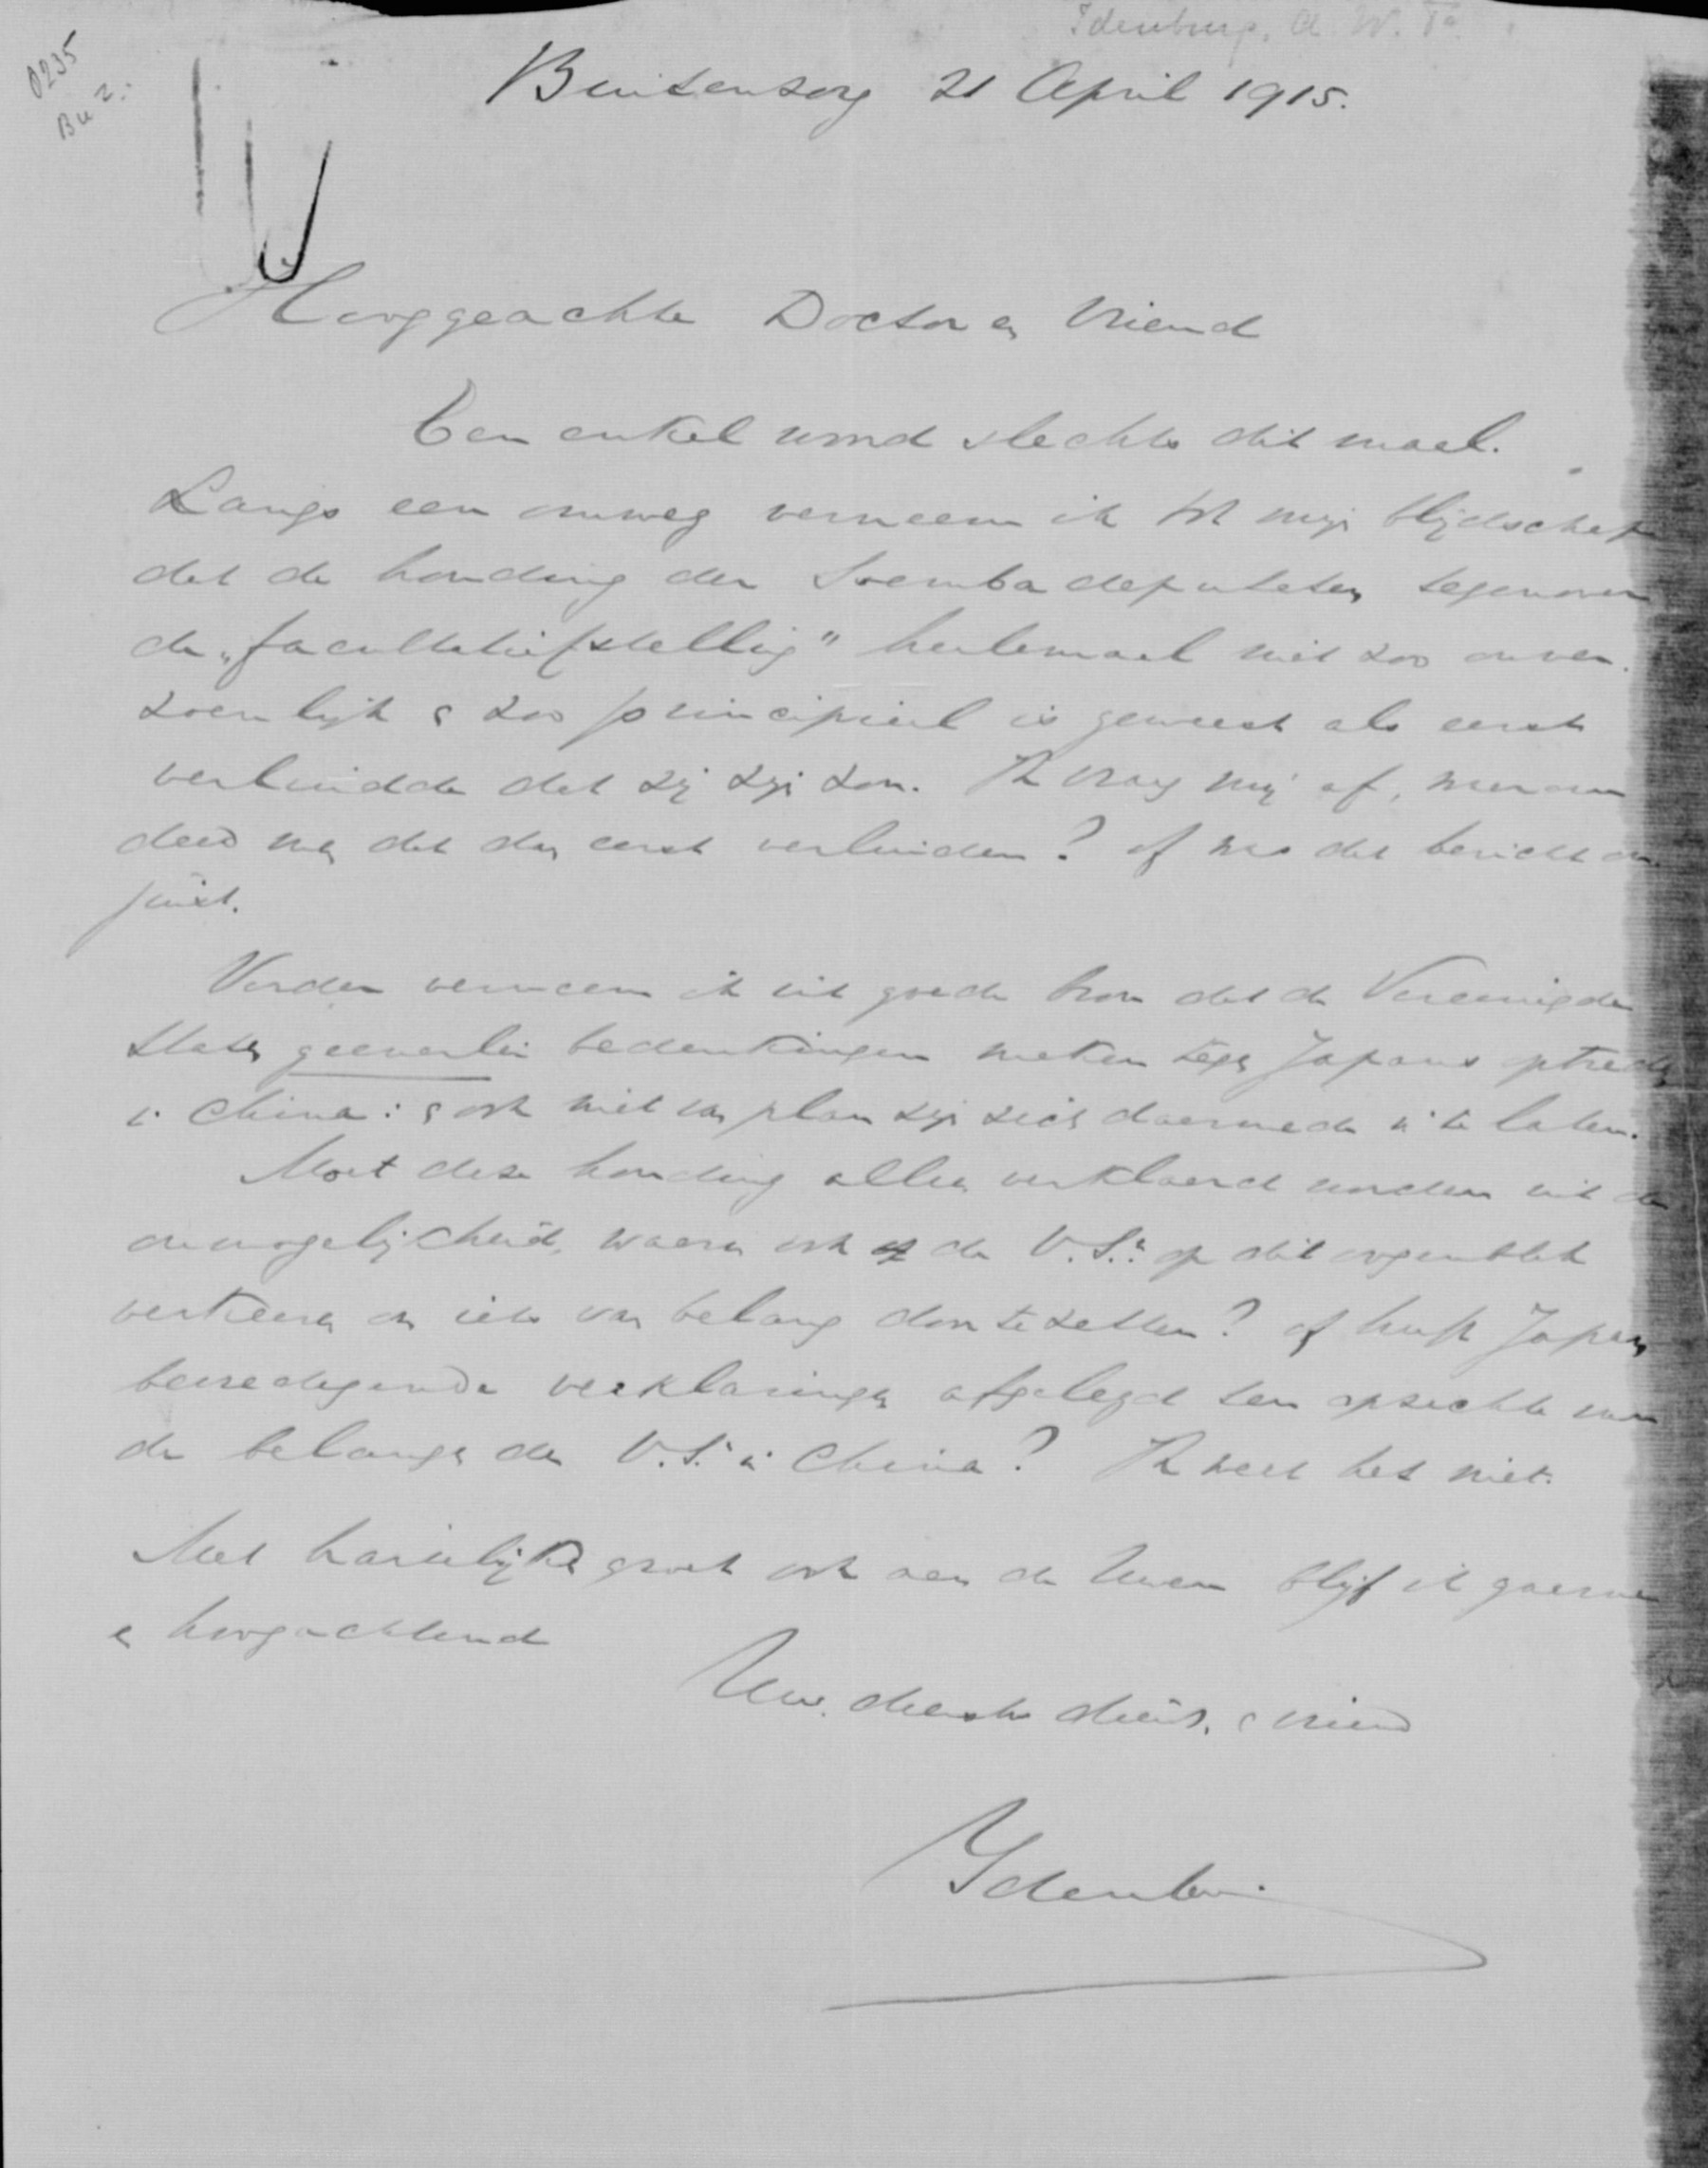 Idenburg, A. W. F.
0235
Bu 2:
Buitenzorg 21 April 1915.
Hooggeachte Doctor en Vriend
Een enkel woord slechts dit maal.
Langs een omweg verneem ik tot mijn blijdschap
dat de houding der Soemba deputaten tegenover
de „facultatiefstelling" heelemaal niet zoo onver-
zoenlijk & zoo principieel is geweest als eerst
verluidde dat zij zijn zou. Ik vraag mij af, waarom
deed men dat dan eerst verluiden? of was dat bericht on-
juist.
Verder verneem ik uit goede bron dat de Vereenigde
Staten geenerlei bedenkingen maken tegen Japans optreden
in China: & ook niet van plan zijn zich daarmede in te laten.
Moet deze houding alleen verklaard worden uit de
onmogelijkheid, waarin ook de V.S.n op dit oogenblik
verkeeren om iets van belang door te zetten? of heeft Japan
bevredigende verklaringen afgelegd ten opzichte van
de belangen der V.S.n in China? Ik weet het niet.
Met hartelijke groet ook aan de Uwen blijf ik gaarne
en hoogachtend
Uw. dienstw. dien. & vriend
Idenburg